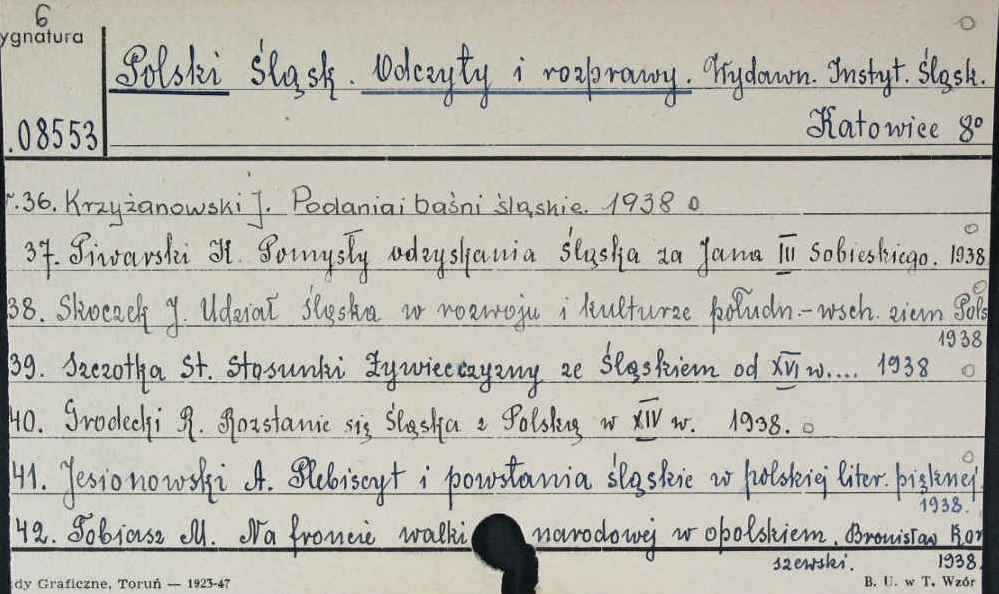 6
ygnatura
Polski Śląsk. Odczyty i rozprawy. Wydawn. Instyt. Śląsk.
.08553 Katowice 8°
r.36. Krzyżanowski J. Podania i baśni śląskie. 1938 o
37. Piwarski K. Pomysły odzyskania Śląska za Jana III Sobieskiego. 1938
38. Skoczek J. Udział Śląska w rozwoju i kulturze połudn.-wsch. ziem Pols
1938
39. Szczotka St. Stosunki Żywiecczyzny ze Śląskiem od XVI w.... 1938
40. Grodecki R. Rozstanie się Śląska z Polską w XIV w. 1938.
41. Jesionowski A. Plebiscyt i powstania śląskie w polskiej liter. pięknej.
1938.
42. Tobiasz M. Na froncie walki narodowej w opolskiem. Bronisław Kor
szewski. 1938.
dy Graficzne, Toruń — 1923-47 B. U. w T. Wzór